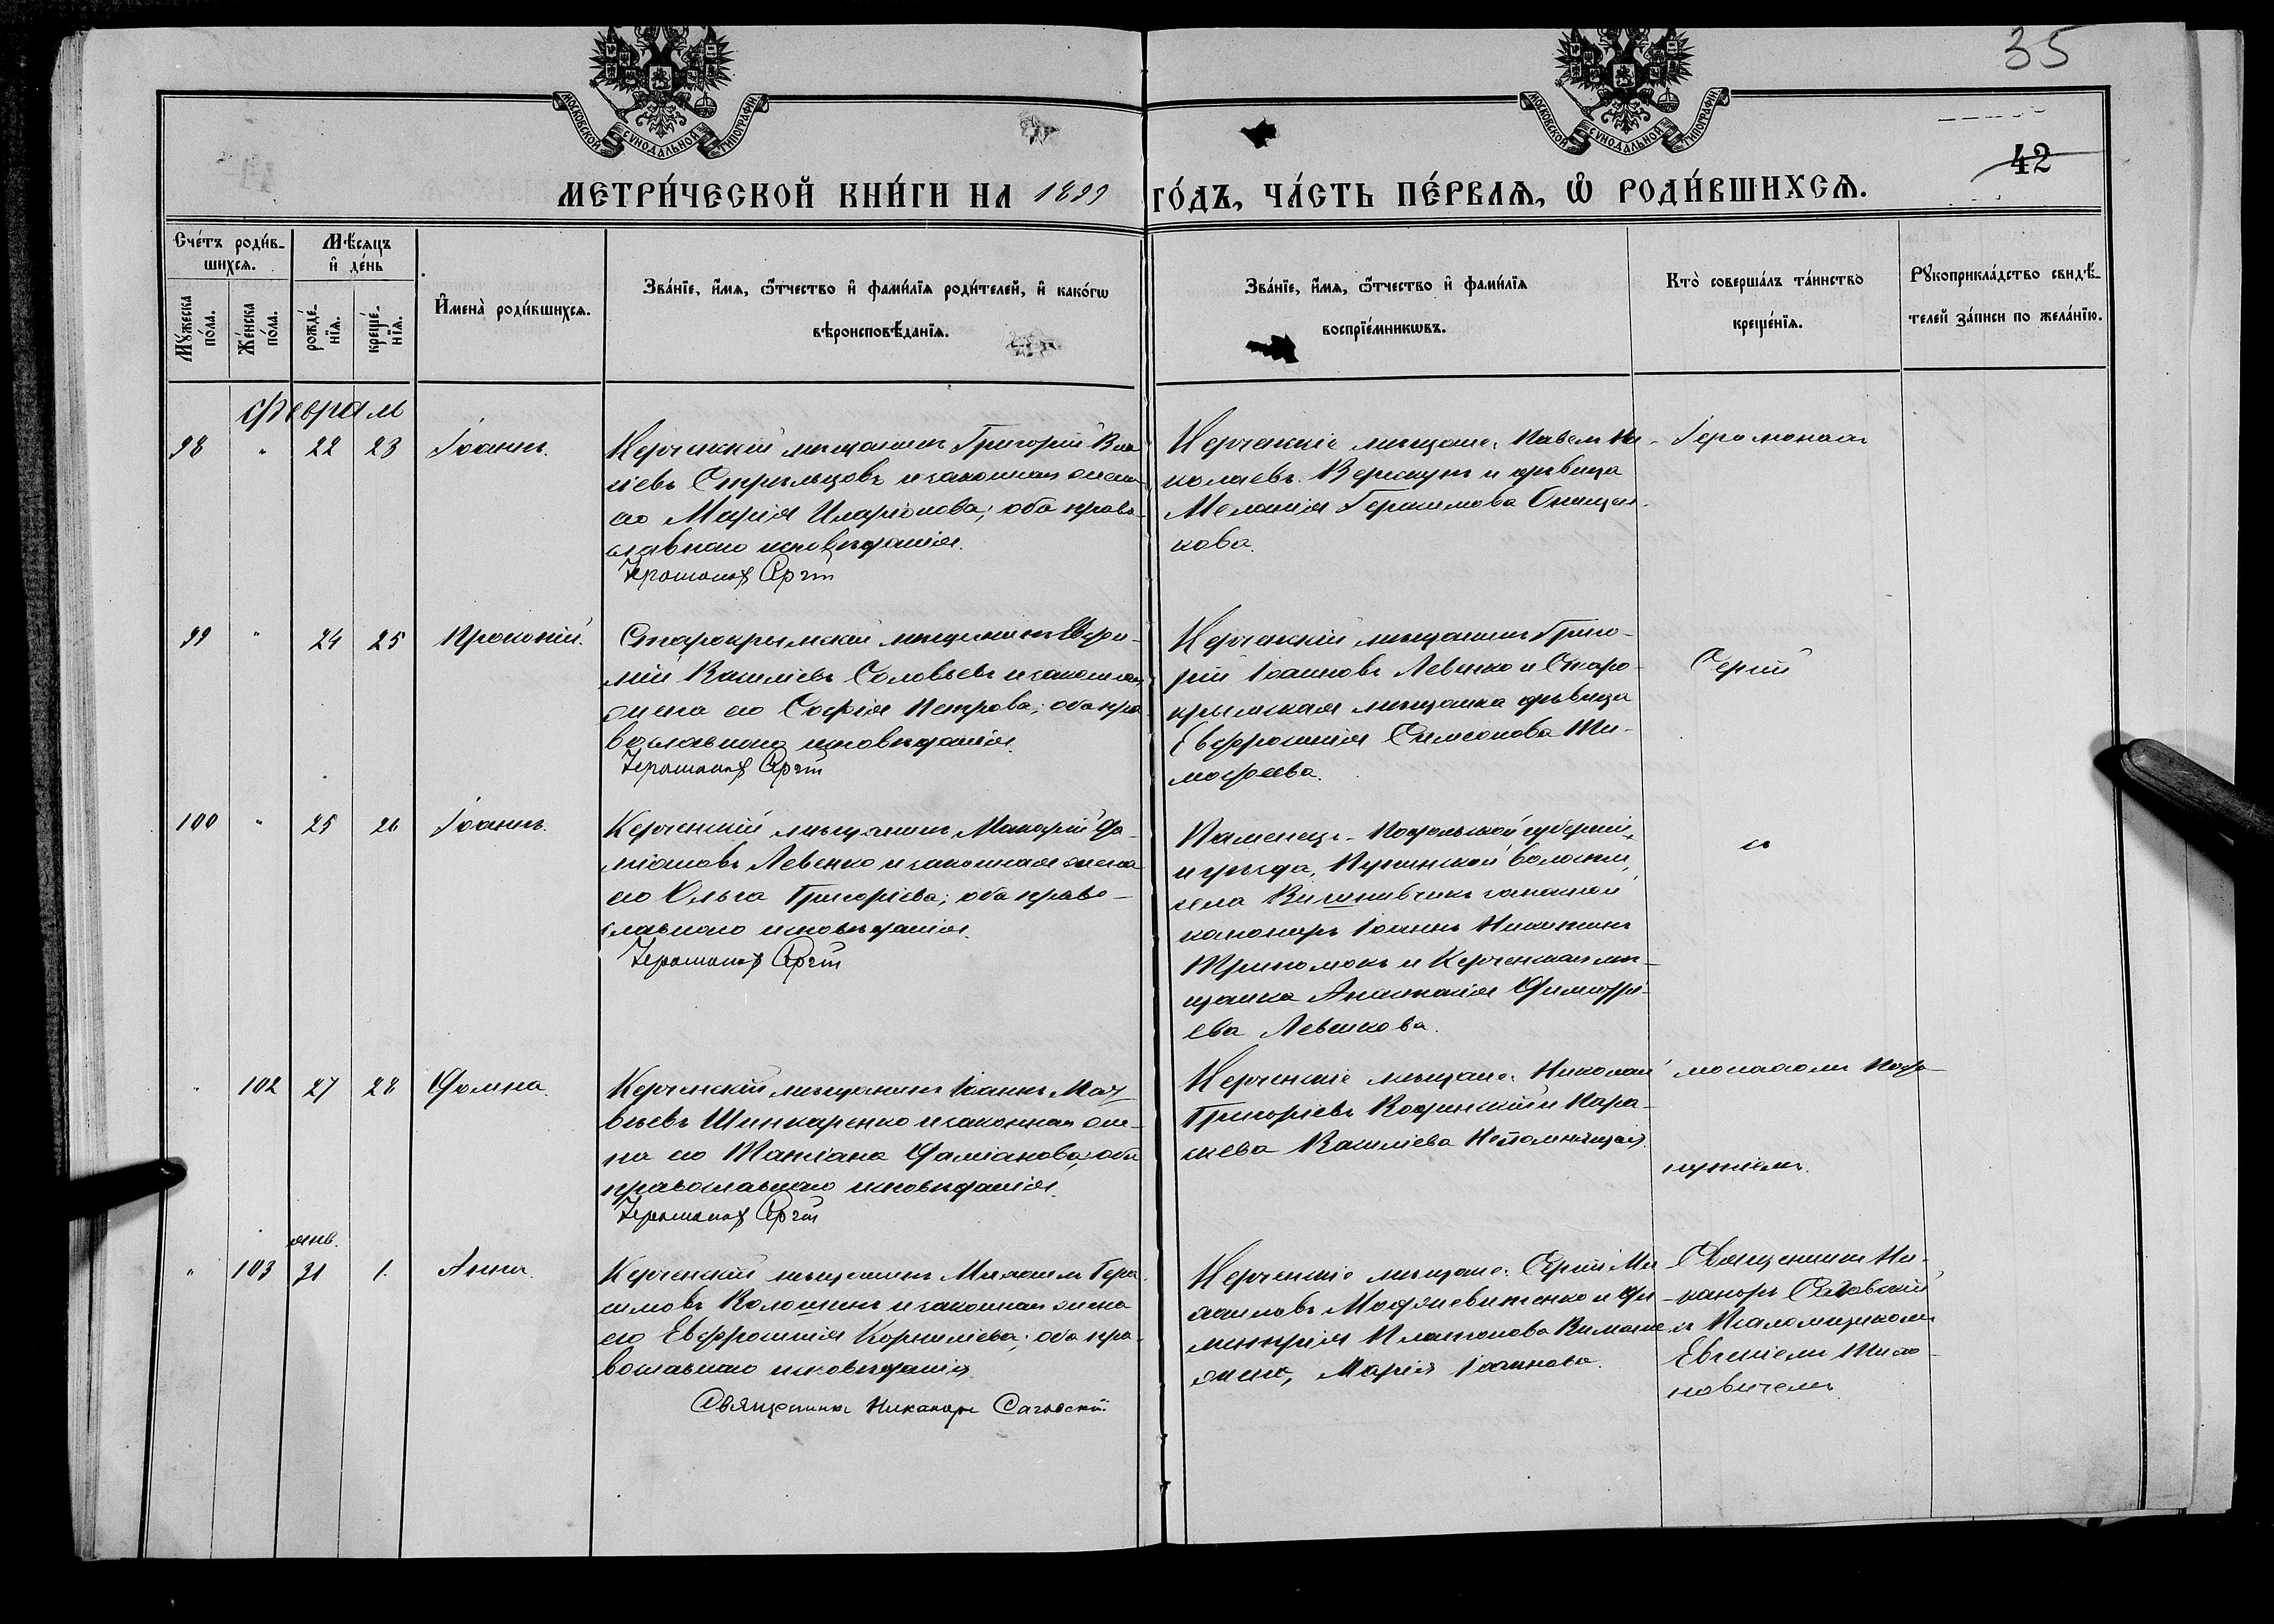 35
42
МОСКОВСКОЙ СУНОДАЛЬНОЙ ТИПОГРАФІИ
МОСКОВСКОЙ СУНОДАЛЬНОЙ ТИПОГРАФІИ
МЕТРИ́ЧЕСКОЙ КНИ́ГИ НА 1899 ГО́ДЪ, ЧА́СТЬ ПЕ́РВАѦ, Ѡ҆ РОДИ́ВШИХСѦ.
Сче́тъ роди́в-
шихсѧ.
Мѣ́сяцъ
и҆ де́нь
Мꙋ́жеска
по́ла.
Же́нска
по́ла.
рожде́-
нїѧ.
креще́-
нїѧ.
И҆мена̀ роди́вшихсѧ.
Зва́нїе, и҆́мѧ, ѻ҆́тчество и҆ фами́лїѧ роди́телей, и҆ како́гѡ
вѣроисповѣ́данїѧ.
Зва́нїе, и҆́мѧ, ѻ҆́тчество и҆ фами́лїѧ
воспрїе́мникѡвъ.
Кто̀ соверша́лъ та́инство
креще́нїѧ.
Рꙋкоприкла́дство свидѣ́-
телей за́писи по жела́нїю.
Февраль
98 " 22 23 Іоаннъ.
Керченскій мѣщанинъ Григорій Васи
ліевъ Стрѣльцовъ и законная жена
его Марія Иларіонова; оба право
славнаго исповѣданія.
Іеромонахъ Сергій
Керченскіе мѣщане: Павелъ Ни-
колаевъ и дѣвица
Меланія Герасимова
кова.
Іеромонахъ
99 " 24 25 Прокопій.
Старокрымскій мѣщанинъ Евѳи-
мій Василіевъ Соловьевъ и законная
жена его Софія Петрова; оба пра
вославнаго исповѣданія.
Іеромонахъ Сергій
Керченскій мѣщанинъ Григо-
рій Іоанновъ Левенко и Старо-
крымская мѣщанка дѣвица
Евфросинія Симеонова Ти-
моѳеева.
Сергій
100 " 25 26 Іоаннъ.
Керченскій мѣщанинъ Макарій Да-
міановъ Левенко и законная жена
его Ольга Григоріева; оба право-
славнаго исповѣданія.
Іеромонахъ Сергій
Каменецъ-Подольской губерніи
и уѣзда, волости,
села запасной
канониръ Іоаннъ Никитинъ
и Керченская мѣ-
щанка Анастасія Димитрі-
ева Левенкова.
съ
" 102 27 28 Домна.
Керченскій мѣщанинъ Іоаннъ Мат
вѣевъ Шинкаренко и законная же-
на его Татіана Даміанова; оба
православнаго исповѣданія.
Іеромонахъ Сергій
Керченскіе мѣщане: Николай
Григоріевъ и Пара-
скева Василіева Непомнящая.
монахомъ
янв.
" 103 31 1. Анна.
Керченскій мѣщанинъ Михаилъ Гера
симовъ Колошинъ и законная жена
его Евфросинія Корниліева; оба пра-
вославнаго исповѣданія.
Священникъ Никаноръ
Керченскіе мѣщане: Сергій Ми
хаиловъ и Ди-
митрія Платонова
жена, Марія Іоаннова.
Священникъ Ни-
каноръ
съ Псаломщикомъ
Евгеніемъ Тихо-
новичемъ